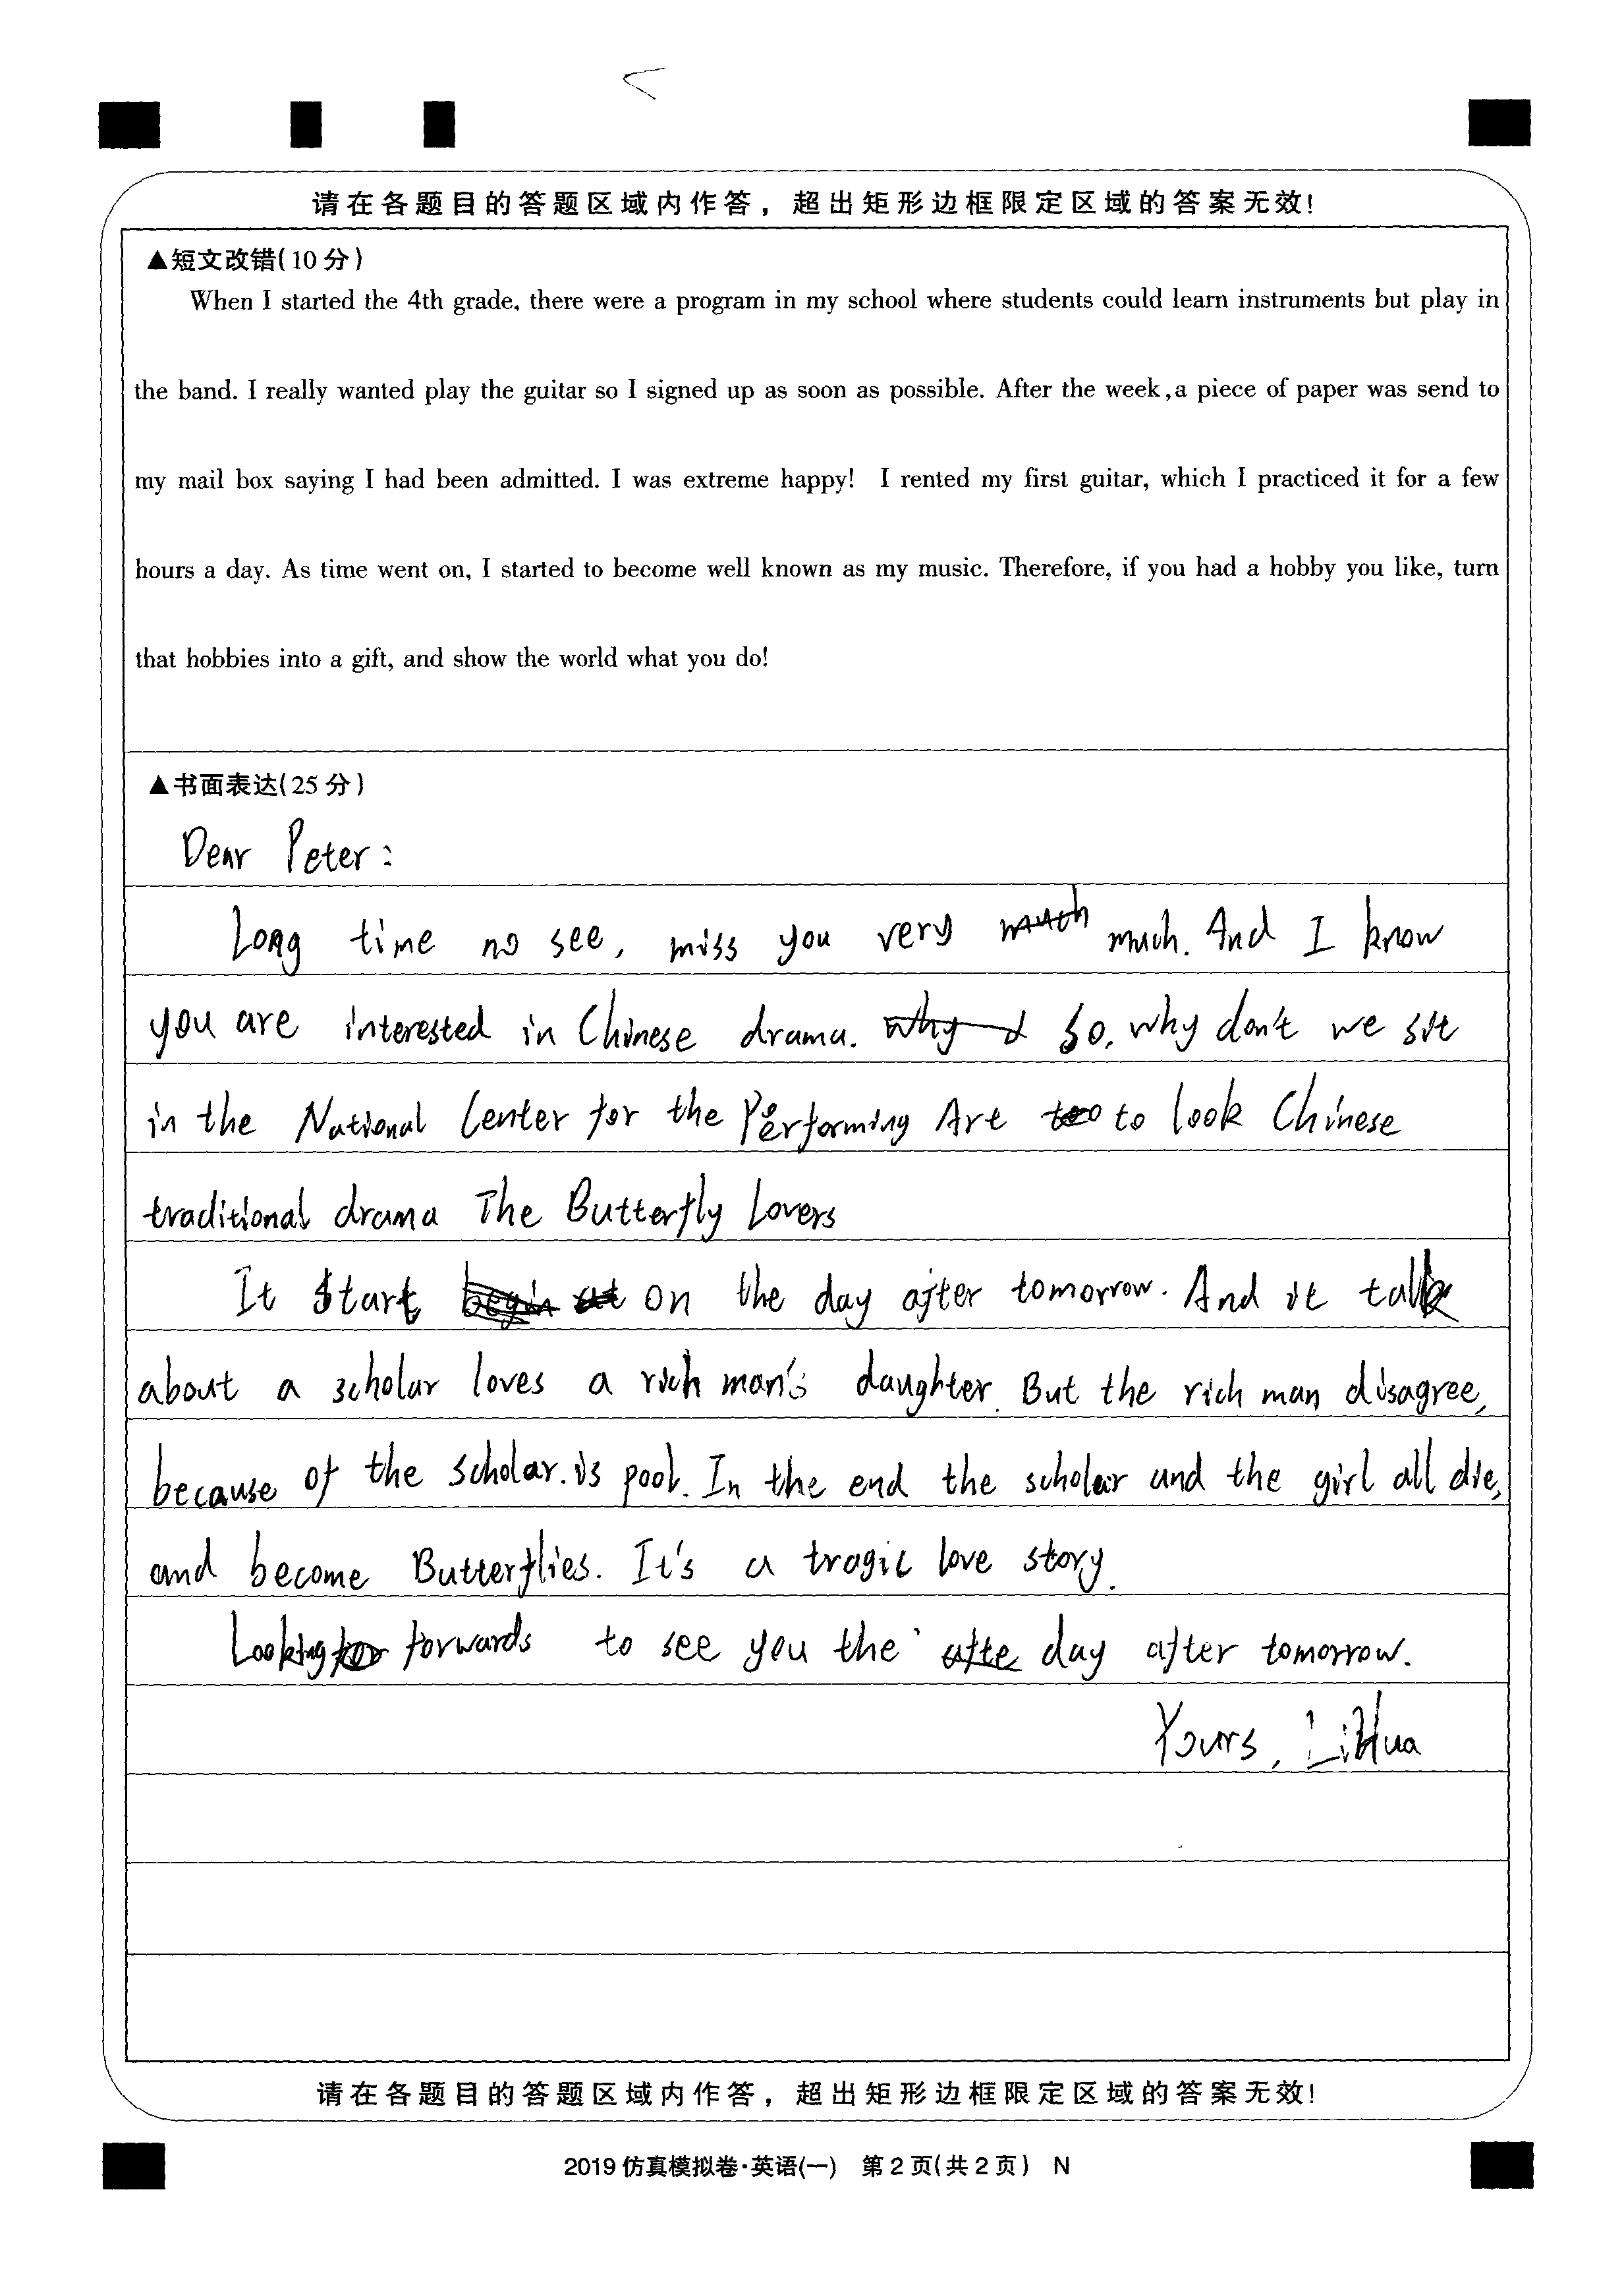 请在各题目的答题区域内作答，超出矩形边框限定区域的答案无效！
▲短文改错(10分)
When I started the 4th grade, there were a program in my school where students could learn instruments but play in
the band. I really wanted play the guitar so I signed up as soon as possible. After the week,a piece of paper was send to
my mail box saying I had been admitted. I was extreme happy! I rented my first guitar, which I practiced it for a few
hours a day. As time went on, I started to become well known as my music. Therefore, if you had a hobby you like, turn
that hobbies into a gift, and show the world what you do!
▲书面表达(25分)
Dear Peter:
Long time no see, miss you very much much. And I know
you are interested in Chinese drama. why I So, why don't we sit
in the National Center for the Performing Art too to look Chinese
traditional drama The Butterfly Lovers
It start begin at on the day after tomorrow. And it talk
about a scholar loves a rich man's daughter. But the rich man disagree,
because of the scholar. is poor. In the end the scholar and the girl all die,
and become Butterflies. It's a tragic love story.
Looking for forwards to see you the afte day after tomorrow.
Yours, LiHua
请在各题目的答题区域内作答，超出矩形边框限定区域的答案无效！
2019仿真模拟卷·英语(一) 第2页(共2页) N